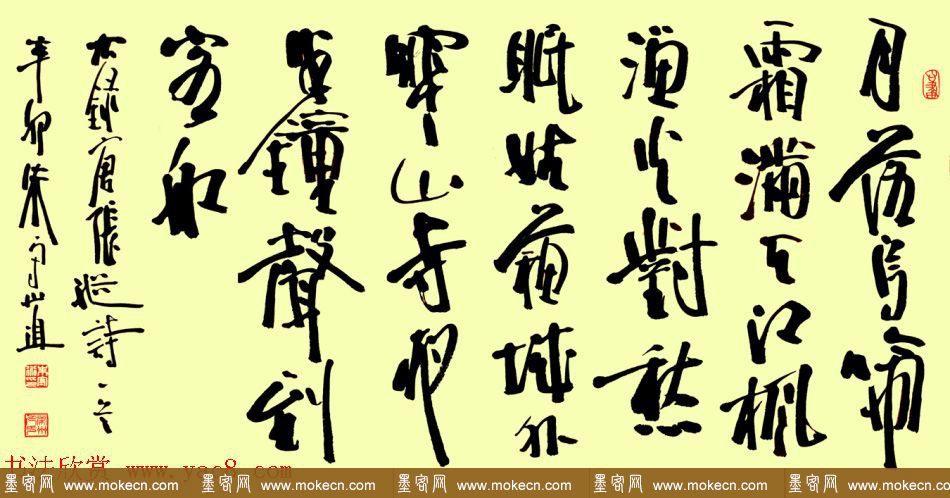 月落烏啼
霜滿天江楓
漁火對愁
眠姑蘇城外
寒山寺夜
半鐘聲到
客船
右錄唐張継詩一首
辛卯朱守道
书法欣赏 www.yac8.com
墨客网 www.mokecn.com 墨客网 www.mokecn.com 墨客网 www.mokecn.com 墨客网 www.mokecn.com 墨客网 www.mokecn.com